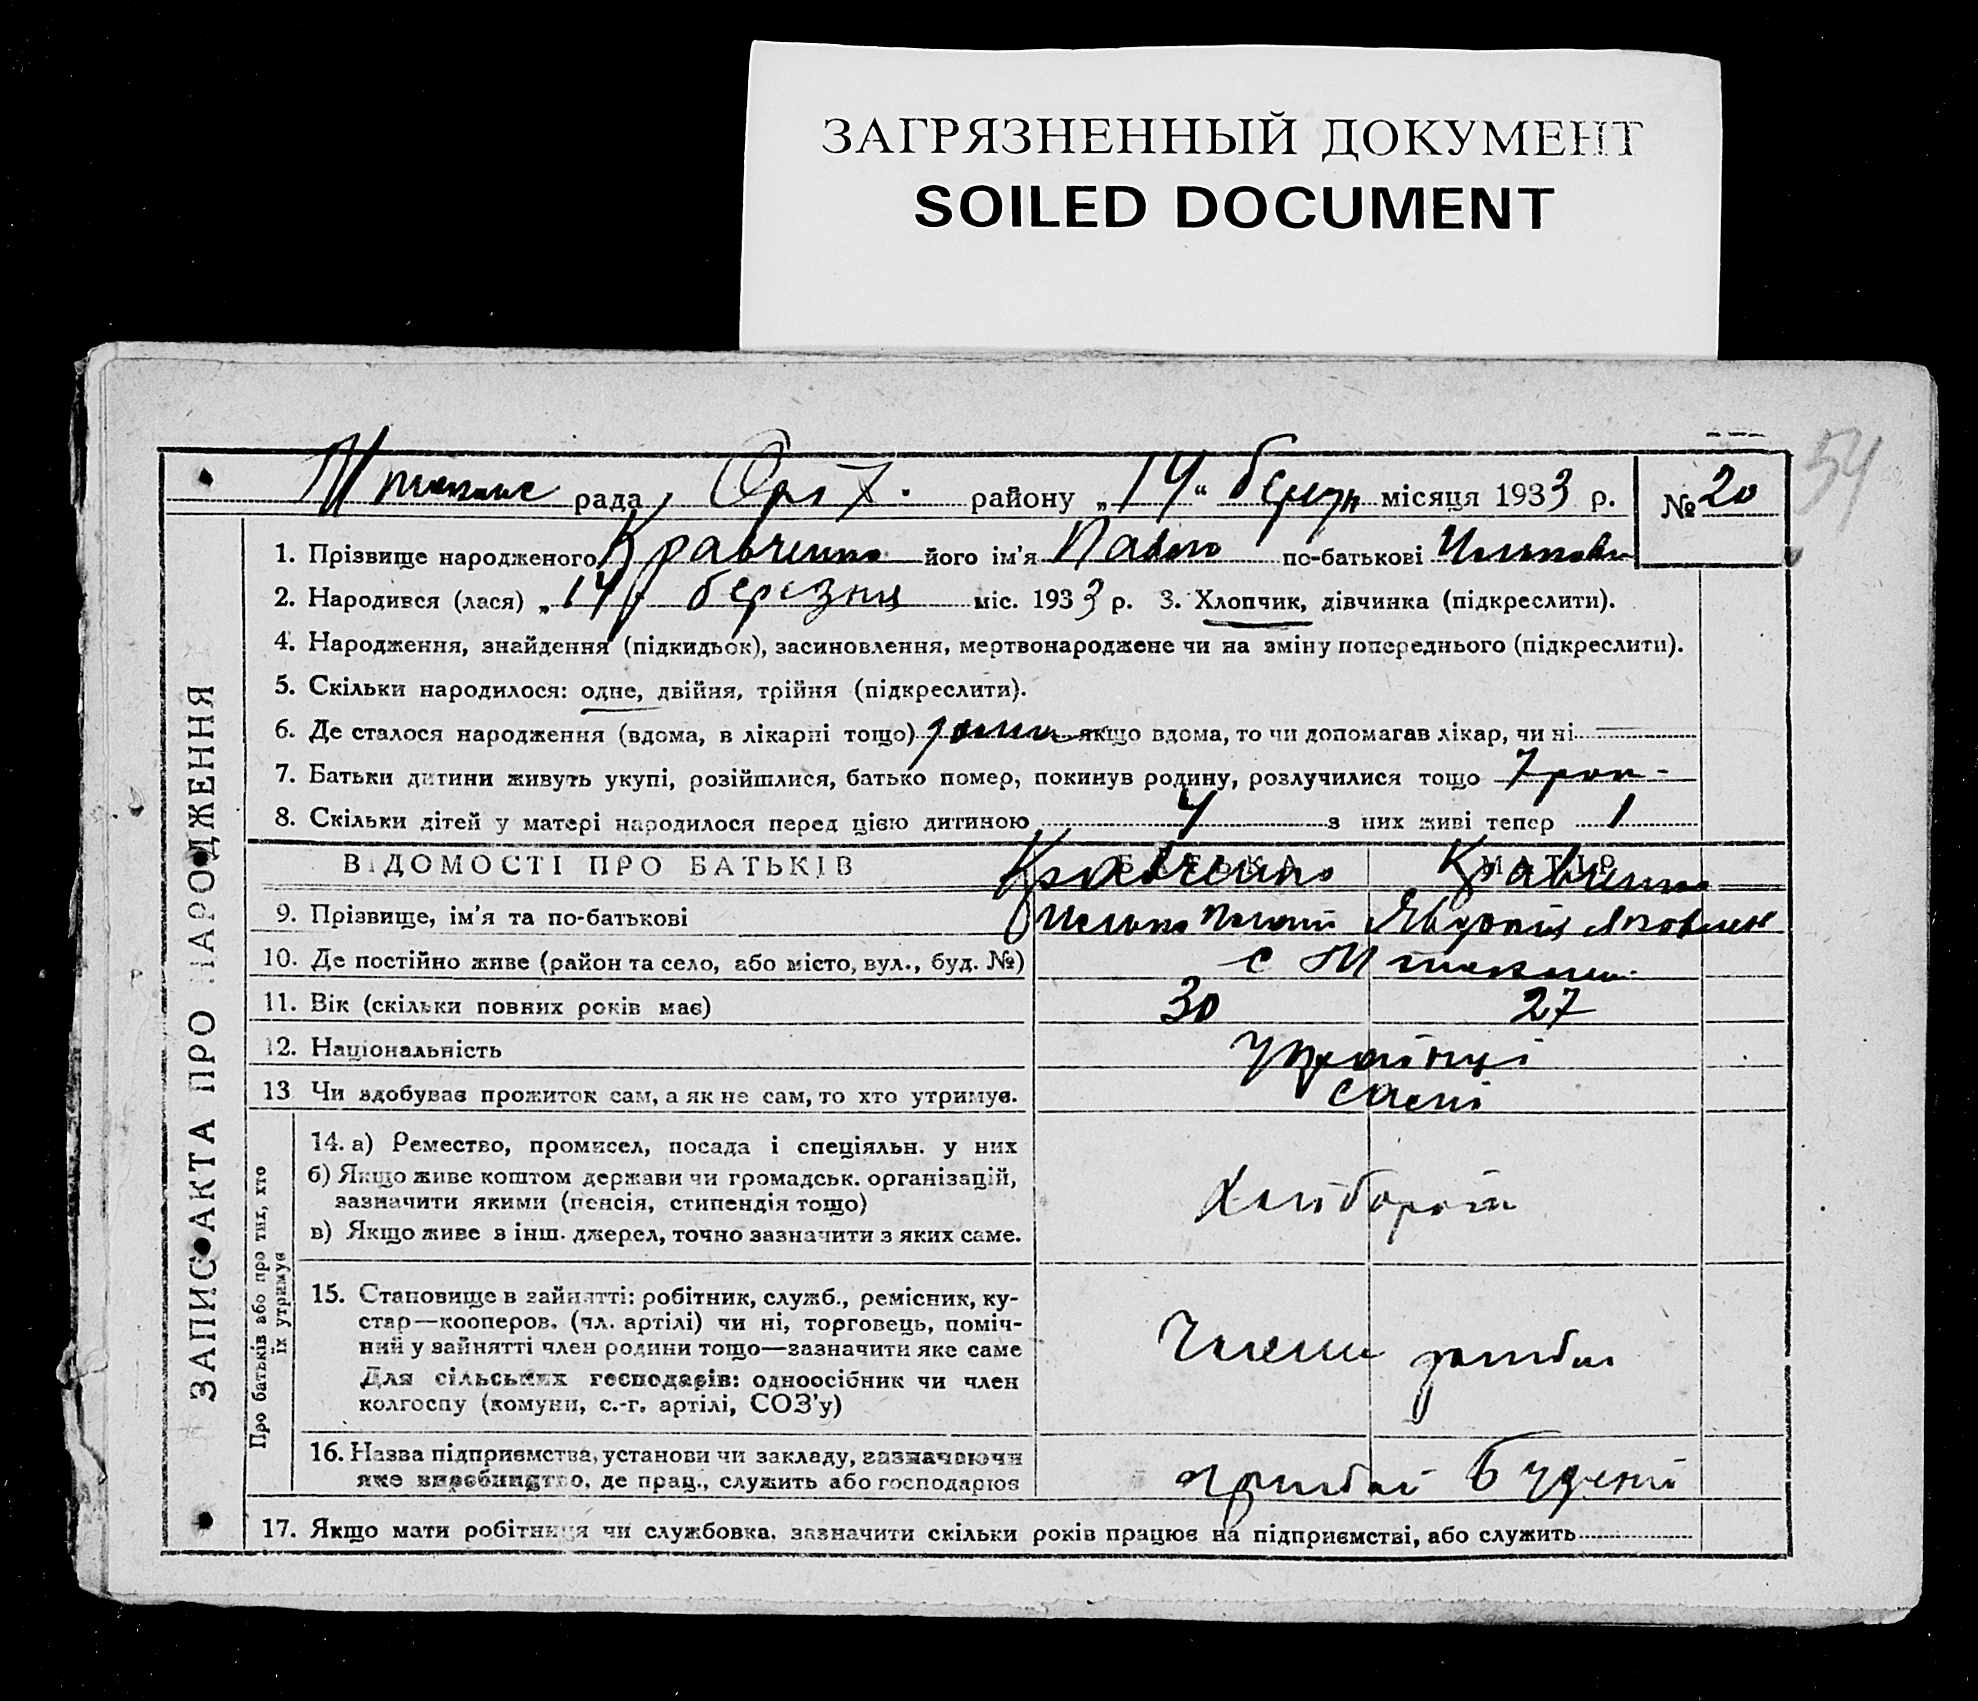 ЗАГРЯЗНЕННЫЙ ДОКУМЕНТ
SOILED DOCUMENT
54
рада, району „14“ місяця 1933 р. № 20
ЗАПИС АКТА ПРО НАРОДЖЕННЯ
1. Прізвище народженого Кравченко його ім'я Павло по-батькові
2. Народився (лася) „14“ березня міс. 1933 р. 3. Хлопчик, дівчинка (підкреслити).
4. Народження, знайдення (підкидьок), засиновлення, мертвонароджене чи на зміну попереднього (підкреслити).
5. Скільки народилося: одне, двійня, трійня (підкреслити).
6. Де сталося народження (вдома, в лікарні тощо) дома якщо вдома, то чи допомагав лікар, чи ні
7. Батьки дитини живуть укупі, розійшлися, батько помер, покинув родину, розлучилися тощо
8. Скільки дітей у матері народилося перед цією дитиною 4 з них живі тепер 1
ВІДОМОСТІ ПРО БАТЬКІВ БАТЬКА МАТІР
Кравченко Кравченко
9. Прізвище, ім'я та по-батькові
10. Де постійно живе (район та село, або місто, вул., буд. №) с
11. Вік (скільки повних років має) 30 27
12. Національність українці
13 Чи здобуває прожиток сам, а як не сам, то хто утримує. самі
Про батьків або про тих, хто
їх утримує
14. а) Ремество, промисел, посада і спеціяльн. у них
б) Якщо живе коштом держави чи громадськ. організацій,
зазначити якими (пенсія, стипендія тощо)
в) Якщо живе з інш. джерел, точно зазначити з яких саме.
хлібороби
15. Становище в зайнятті: робітник, служб., ремісник, ку-
стар—кооперов. (чл. артілі) чи ні, торговець, поміч-
ний у зайнятті член родини тощо—зазначити яке саме
Для сільських господарів: одноосібник чи член
колгоспу (комуни, с.-г. артілі, СОЗ'у)
Члени
16. Назва підприємства, установи чи закладу, зазначаючи
яке виробництво, де прац., служить або господарює
17. Якщо мати робітниця чи службовка, зазначити скільки років працює на підприємстві, або служить